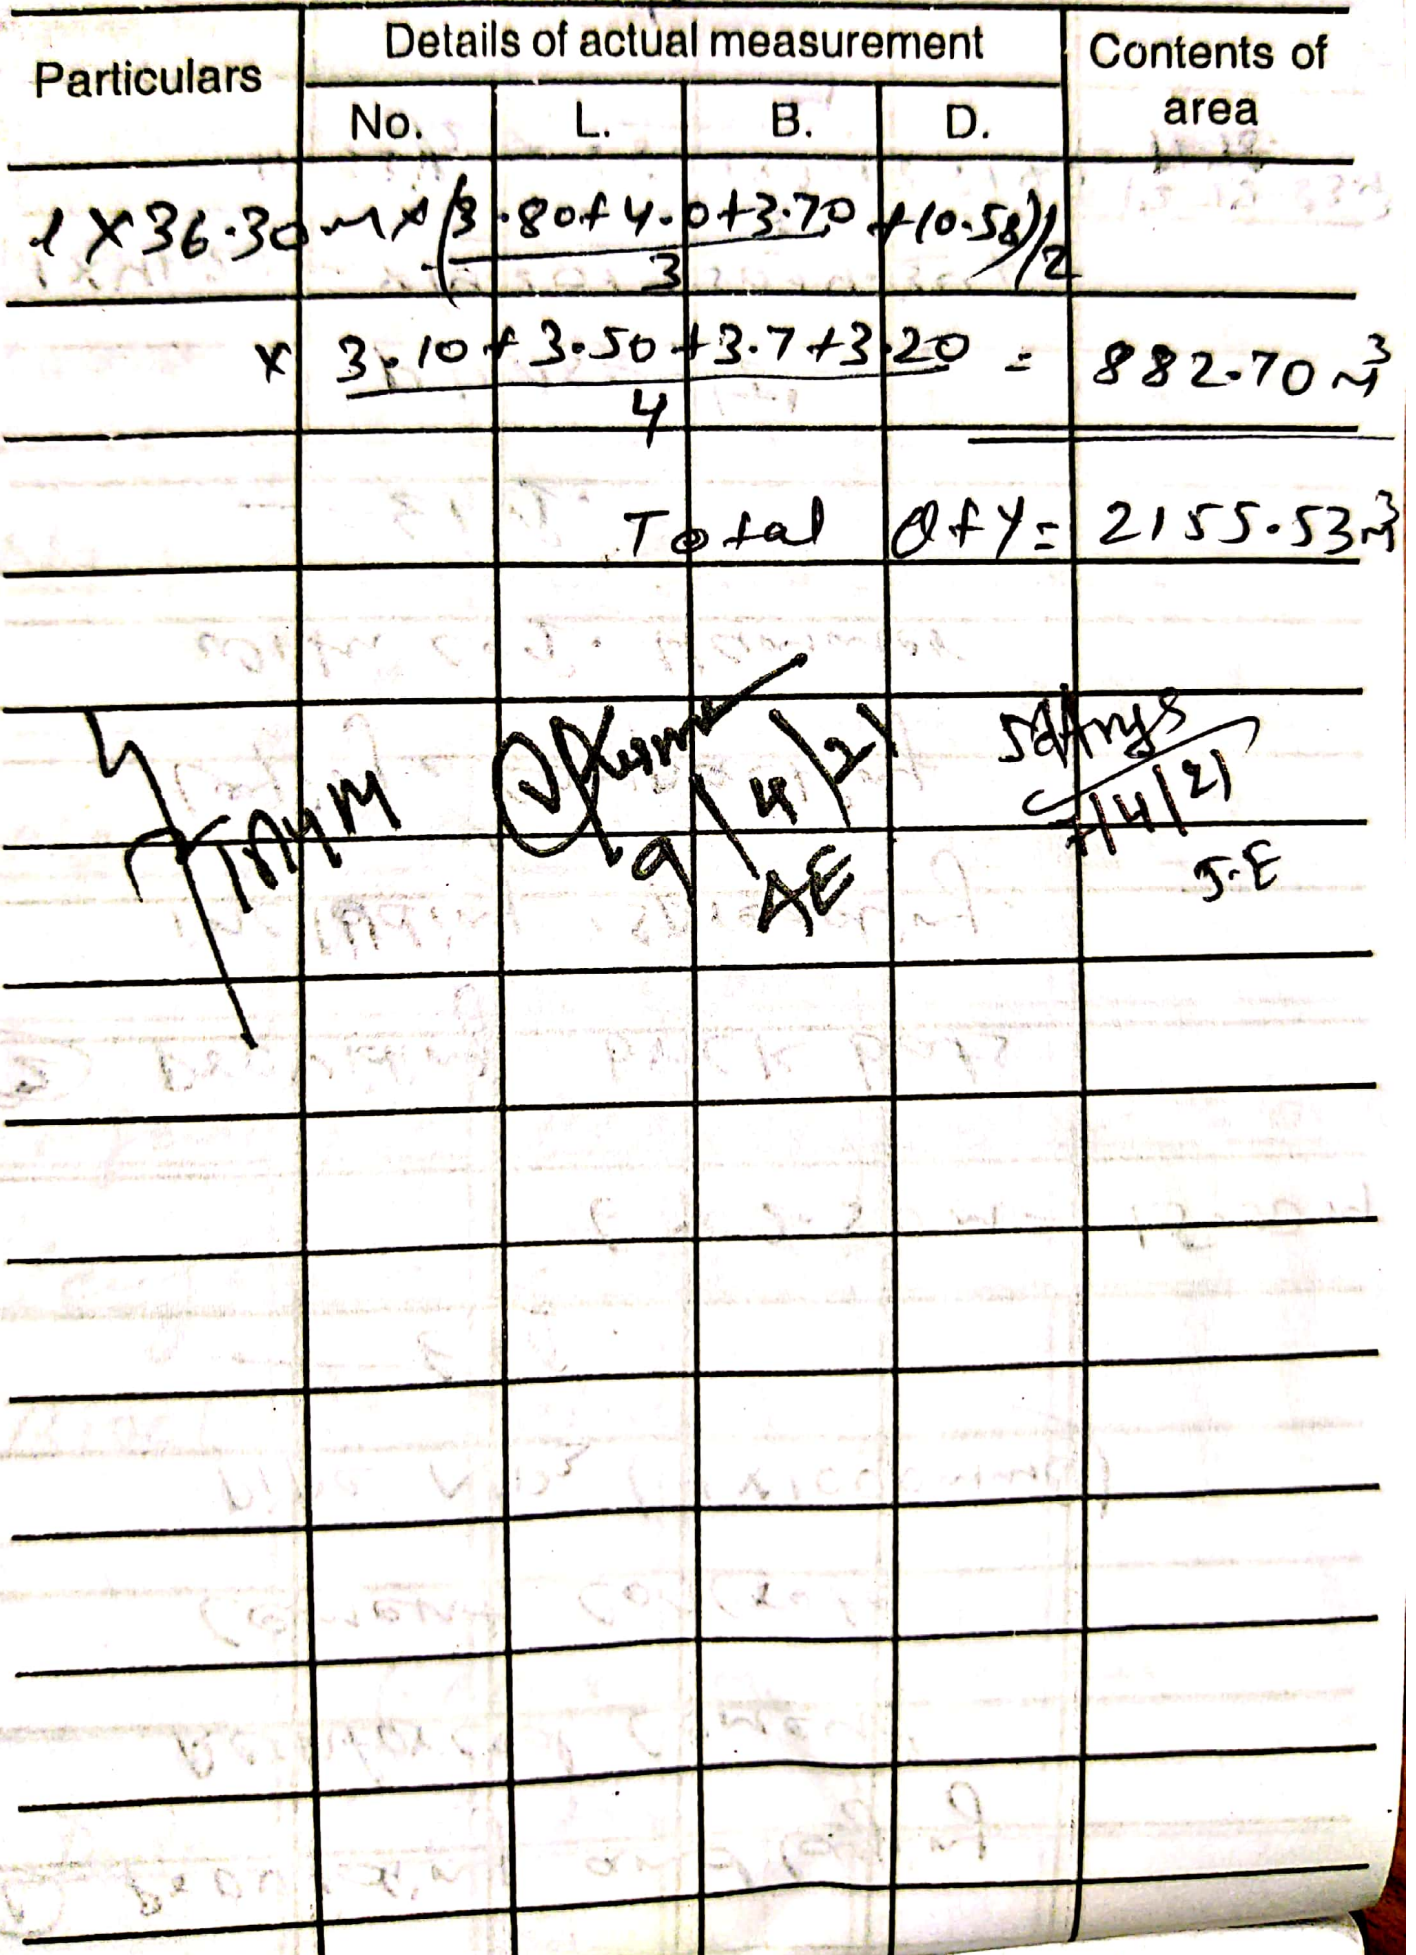 Particulars Details of actual measurement Contents of area
No. L. B. D.
1 X 36.30 M x (3.80+4.0+3.70 + (0.58))/2
3
x 3.10 + 3.50 + 3.7 + 3.20 = 882.70 M3
4
Total Qty = 2155.53 M3
9/4/21
AE
7/4/21
J.E